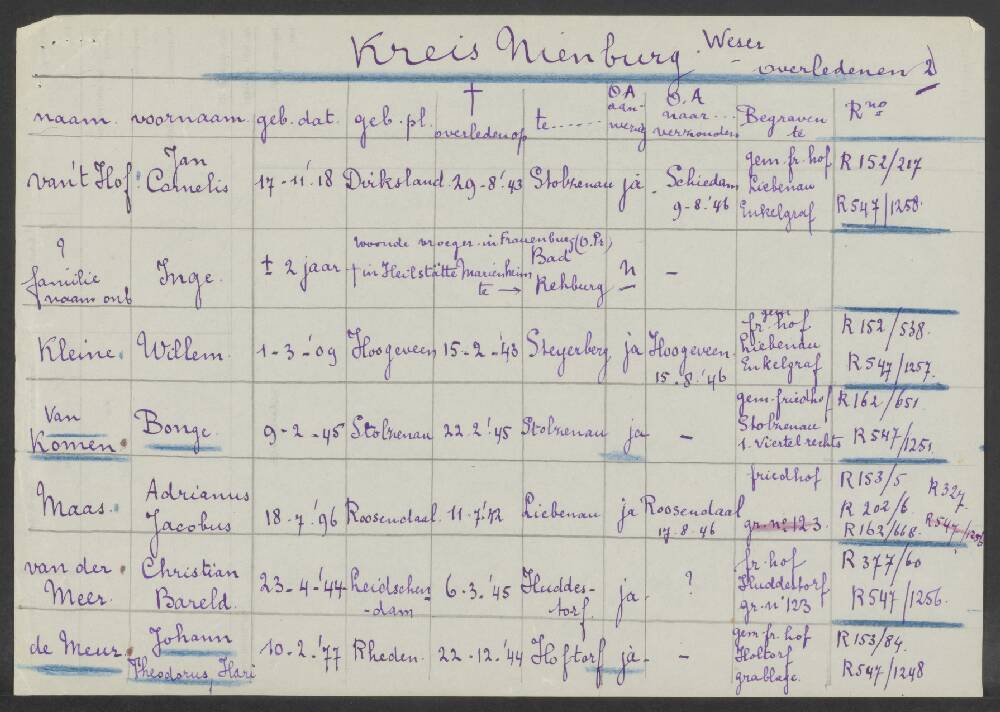 Kreis Nienburg Weser
overledenen 2)
naam. voornaam. geb. dat. geb. pl. † overleden op te ...... O.A aan-wezig O.A. naar ... verzonden Begraven te R no
van 't Hof. Jan Cornelis 17-11-'18 Dirksland 29-8-'43 Stolzenau ja. Schiedam 9-8-'46 gem. fr. hof Liebenau Enkelgraf R 152/217 R 547/1258.
? familie naam onb Inge. ± 2 jaar woonde vroeger in Frauenburg (O.Pr) † in Heilstätte Marienheim te → Bad Rehburg n —
Kleine. Willem. 1-3-'09 Hoogeveen 15-2-'43 Steyerberg ja Hoogeveen. 15.8.'46 gem fr. hof Liebenau Enkelgraf R 152/538. R 547/1257.
Van Komen. Bonge. 9-2-45 Stolzenau 22.2.'45 Stolzenau ja — gem. friedhof Stolzenau 1. Viertel rechts R 162/651 R 547/1251.
Maas. Adrianus Jacobus 18-7-'96 Roosendaal. 11-7-'42 Liebenau ja Roosendaal 17.8.46 friedhof gr. no 123. R 153/5 R 202/6. R 162/668. R 327.
van der Meer. Christian Bareld. 23-4-'44 Leidschen-dam 6-3.'45 Huddes-torf ja. ? fr. hof Huddestorf gr. no 123 R 377/60 R 547/1256.
de Meur. Johann Theodorus, Hari 10-2-'77 Rheden. 22-12-'44 Hoftorf ja. — gem. fr. hof Holtorf grablage. R 153/84. R 547/1248